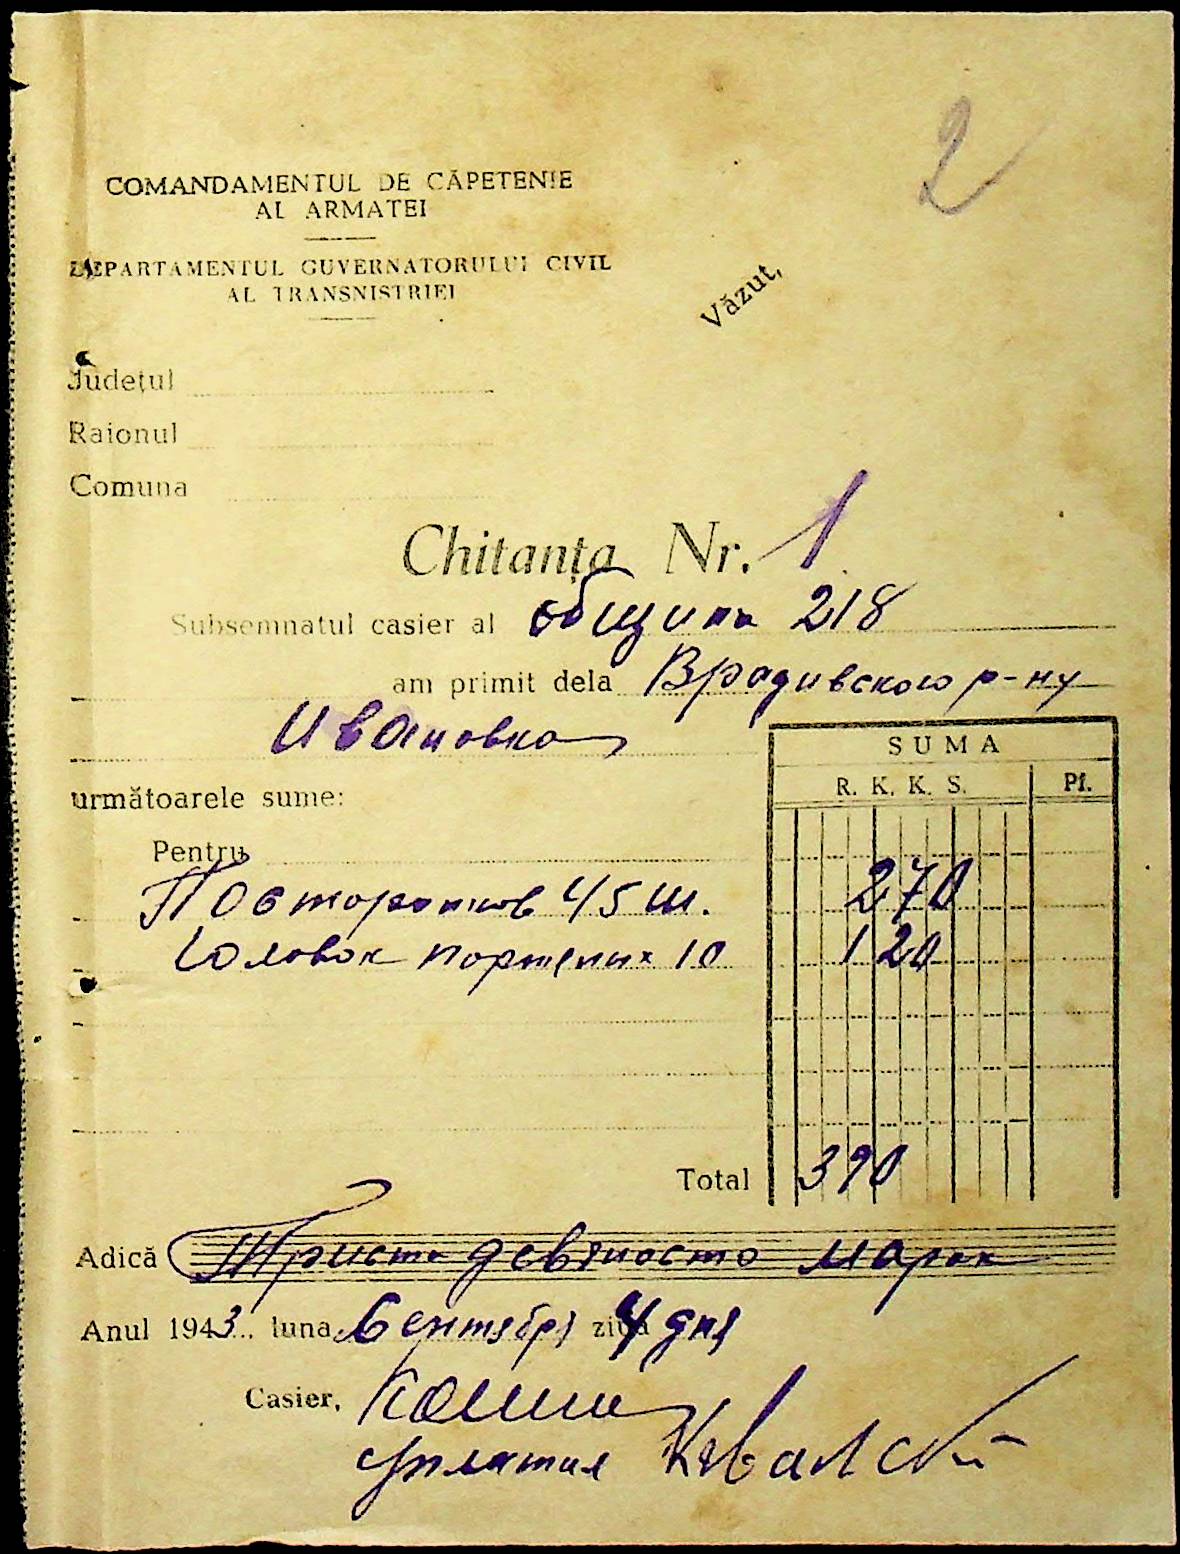 2
COMANDAMENTUL DE CĂPETENIE
AL ARMATEI
DEPARTAMENTUL GUVERNATORULUI CIVIL
AL TRANSNISTRIEI
Văzut,
Județul
Raionul
Comuna
Chitanța Nr. 1
Subsemnatul casier al община 218
am primit dela Врадивского р-ну
Ивановка
următoarele sume:
SUMA
R. K. K. S. Pf.
Pentru
Посторонков 45 ш. 270
10 120
Total 390
Adică Триста девяносто марок
Anul 1943 luna Сентября ziua 4 дня
Casier,
уплатил